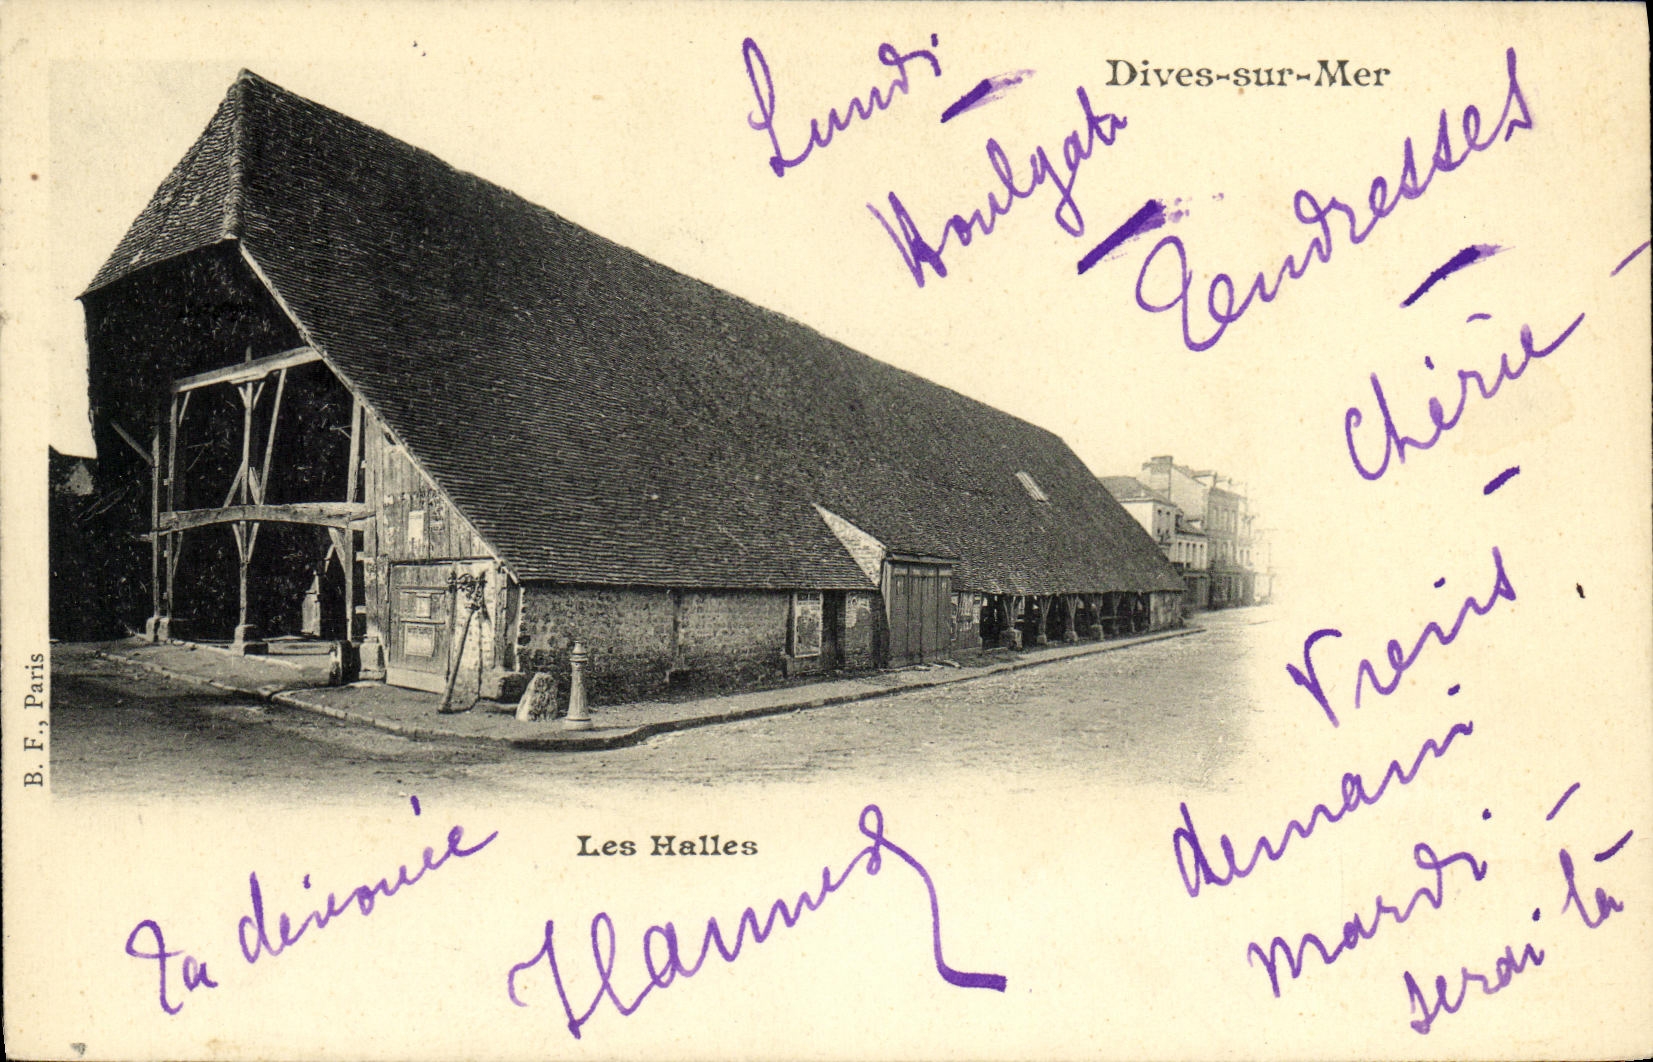 Dives-sur-Mer
Lundi
Houlgate
Tendresses
chérie
Viens
demain
mardi
serai là
Ta dévouée
Les Halles
B. F., Paris